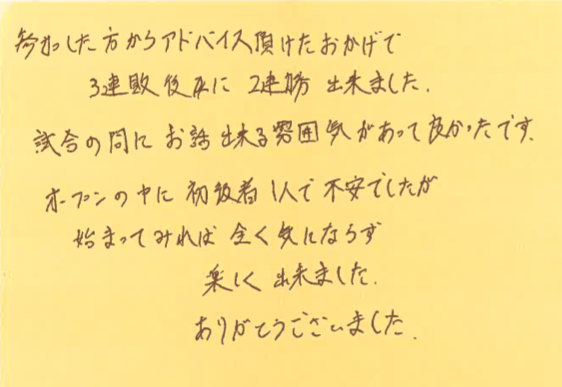 参加した方からアドバイス頂けたおかげで
3連敗後 に 2連勝 出来ました.
試合の間に お話 出来る雰囲気があって良かったです.
オープンの中に 初級者 1人で 不安でしたが
始まってみれば 全く気にならず
楽しく 出来ました.
ありがとうございました.